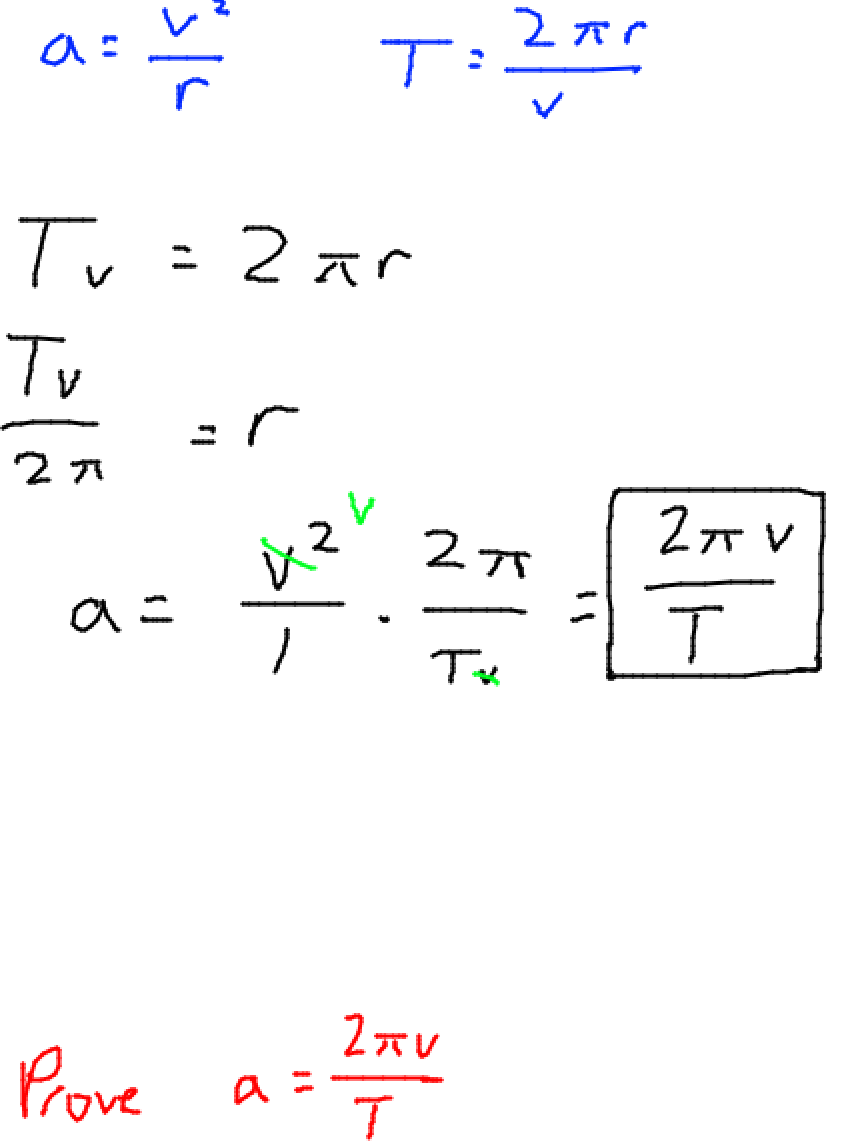 a = v²/r    T = 2πr/v
Tv = 2πr
Tv/2π = r
a = v²/1 · 2π/Tv = 2πv/T
v
Prove a = 2πv/T